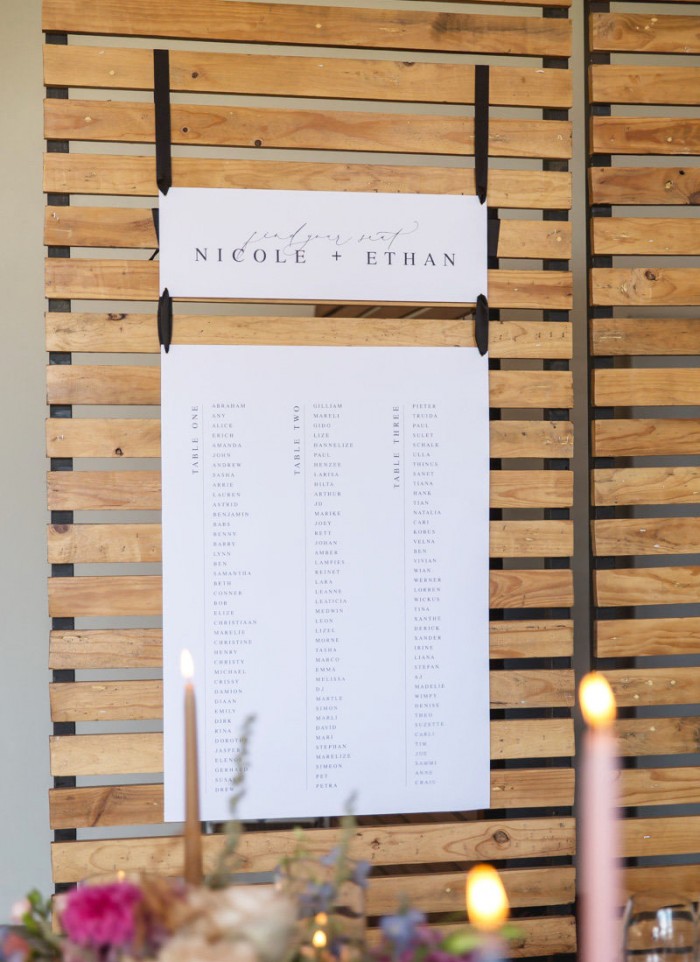 find your seat
NICOLE + ETHAN
TABLE ONE
ABRAHAM
ANY
ALICK
ERICH
AMANDA
JOHN
ANDREW
SASHA
ABRIE
LAUREN
ASTRID
BENJAMIN
BABS
BENNY
BARRY
LYNN
BEN
SAMANTHA
BETH
CONNER
BOB
ELIZE
CHRISTIAAN
MARELIE
CHRISTINE
HENRY
CHRISTY
MICHAEL
CRISSY
DAMION
DIAAN
EMILY
DIRK
RINA
JASPER
DREW
TABLE TWO
GILLIAM
MARELI
GIDO
LIZE
HANNELIZE
PAUL
HENZEE
LARISA
HILTS
ARTHUR
JD
MARIKE
JOEY
BETT
JOHAN
AMBER
LAMPIES
REINET
LARA
LEANNE
LETTICIA
MEDWIN
LEON
LIZEL
MORNE
TASHA
MARCO
EMMA
MELISSA
DJ
MARTLE
SIMON
MARLI
DAVID
MARI
STEPHAN
MARELIZE
SIMEON
PET
PETRA
TABLE THREE
PIETER
TRUIDA
PAUL
SULET
SCHALK
ULLA
THINUS
SANET
TIANA
HANK
TIAN
NATALIA
CARI
KOBUS
VELNA
BEN
VIVIAN
WIAN
WERNER
LORREN
WICKUS
TINA
XANTHE
DERICK
XANDER
IRINE
LIANA
STEFAN
AJ
MADELIE
WIMPY
DENISE
THEO
SUZETTE
CARLI
TIM
JOE
SAMMI
ANNE
CRAIG